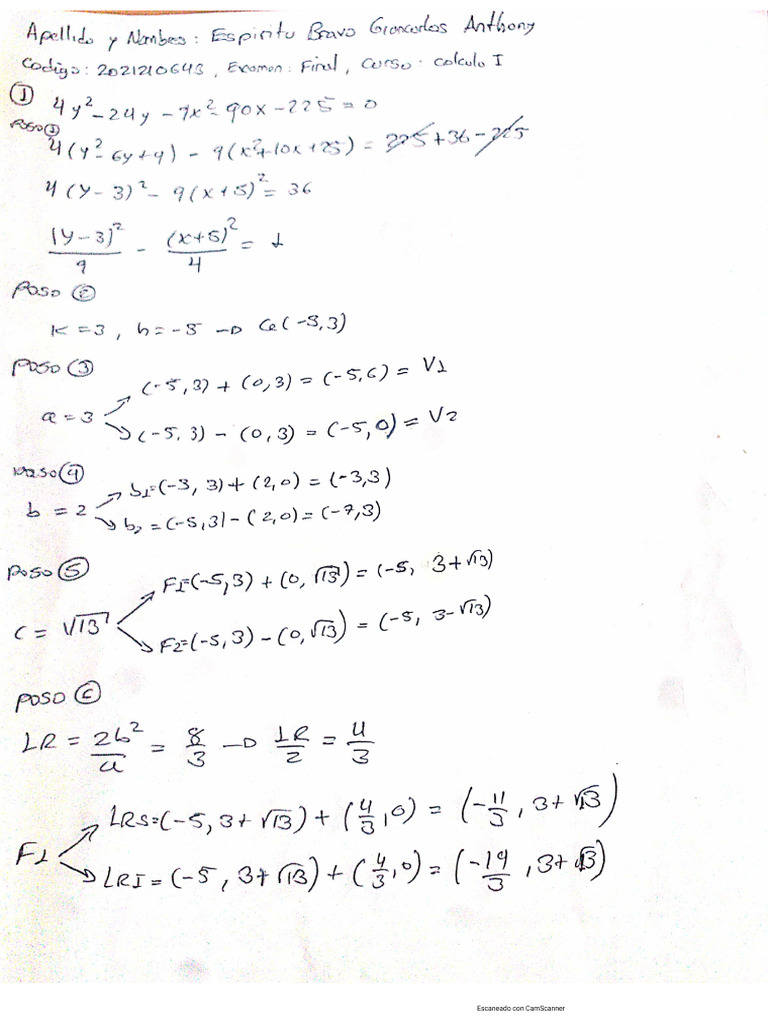 Apellido y Nombres: Espiritu Bravo Giancarlos Anthony
Codigo: 2021210643, Examen: Final, Curso: Calculo I
① 4y² - 24y - 9x² - 90x - 225 = 0
Paso ①
4(y² - 6y + 9) - 9(x² + 10x + 25) = 225 + 36 - 225
4(y - 3)² - 9(x + 5)² = 36
(y - 3)²/9 - (x + 5)²/4 = 1
Paso ②
K = 3, h = -5 → Ce(-5,3)
Paso ③
(-5,3) + (0,3) = (-5,6) = V1
a = 3
(-5,3) - (0,3) = (-5,0) = V2
Paso ④
b1 = (-3, 3) + (2,0) = (-3,3)
b = 2
b2 = (-5,3) - (2,0) = (-7,3)
Paso ⑤
F1 = (-5,3) + (0,√13) = (-5, 3+√13)
c = √13
F2 = (-5,3) - (0,√13) = (-5, 3-√13)
Paso ⑥
LR = 2b²/a = 8/3 → LR/2 = 4/3
LRS = (-5, 3+√13) + (4/3, 0) = (-11/3, 3+√13)
F1
LRI = (-5, 3+√13) + (4/3, 0) = (-19/3, 3+√13)
Escaneado con CamScanner